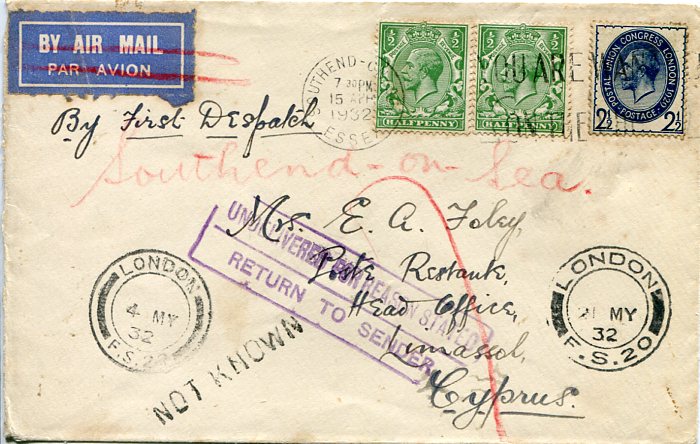 BY AIR MAIL
PAR AVION
SOUTHEND-O
7 30PM
15 APR
1932
ESSEX
½ ½
HALFPENNY
½ ½
HALFPENNY
YOU ARE WAN
ON THE
POSTAL UNION CONGRESS LONDON 1929
POSTAGE
2½ 2½
By First Despatch
Southend-on-Sea.
Mrs. E. A. Foley,
Poste Restante,
Head Office,
Limassol,
Cyprus.
UNDELIVERED FOR REASON STATED
RETURN TO SENDER
NOT KNOWN
LONDON
4 MY
32
F.S.20
LONDON
21 MY
32
F.S.20